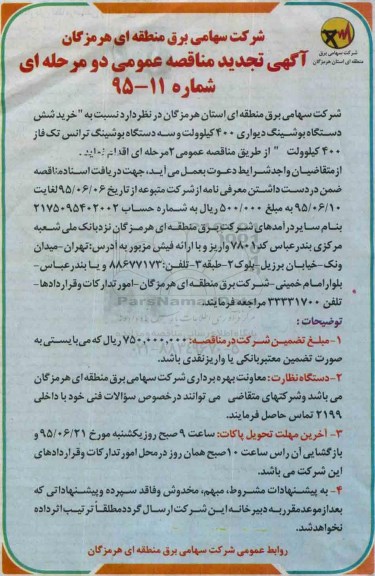 شرکت سهامی برق منطقه ای هرمزگان
آگهی تجدید مناقصه عمومی دو مرحله ای
شماره ۱۱-۹۵
شرکت سهامی برق
منطقه ای استان هرمزگان
شرکت سهامی برق منطقه ای استان هرمزگان در نظر دارد نسبت به "خرید شش
دستگاه بوشینگ دیواری ۴۰۰ کیلوولت و سه دستگاه بوشینگ ترانس تک فاز
۴۰۰ کیلوولت " از طریق مناقصه عمومی ۲ مرحله ای اقدام نماید.
از متقاضیان واجد شرایط دعوت بعمل می آید، جهت دریافت اسناد مناقصه
ضمن در دست داشتن معرفی نامه از شرکت متبوعه از تاریخ ۹۵/۰۶/۰۶ لغایت
۹۵/۰۶/۱۰ به مبلغ ۵۰۰/۰۰۰ ریال به شماره حساب ۲۱۷۵۰۹۵۴۰۲۰۰۲
بنام سایر درآمدهای شرکت برق منطقه ای هرمزگان نزد بانک ملی شعبه
مرکزی بندرعباس کد ۷۸۰۱ واریز و با ارائه فیش مزبور به آدرس: تهران- میدان
ونک- خیابان برزیل- بلوک ۲- طبقه ۳- تلفن: ۸۸۶۷۷۱۷۳ و یا بندرعباس-
بلوار امام خمینی- شرکت برق منطقه ای هرمزگان- امور تدارکات و قراردادها-
تلفن ۳۳۳۳۱۷۰۰ مراجعه فرمایند.
توضیحات :
۱- مبلغ تضمین شرکت در مناقصه: ۷۵۰,۰۰۰,۰۰۰ ریال که می بایستی به
صورت تضمین معتبر بانکی یا واریز نقدی باشد.
۲- دستگاه نظارت: معاونت بهره برداری شرکت سهامی برق منطقه ای هرمزگان
می باشد و شرکتهای متقاضی می توانند در خصوص سؤالات فنی خود با داخلی
۲۱۹۹ تماس حاصل فرمایند.
۳- آخرین مهلت تحویل پاکات: ساعت ۹ صبح روز یکشنبه مورخ ۹۵/۰۶/۲۱ و
بازگشایی آن راس ساعت ۱۰ صبح همان روز در محل امور تدارکات و قراردادهای
این شرکت می باشد.
۴- به پیشنهادات مشروط، مبهم، مخدوش و فاقد سپرده و پیشنهاداتی که
بعد از موعد مقرر به دبیرخانه این شرکت ارسال گردد مطلقاً ترتیب اثر داده
نخواهد شد.
روابط عمومی شرکت سهامی برق منطقه ای هرمزگان